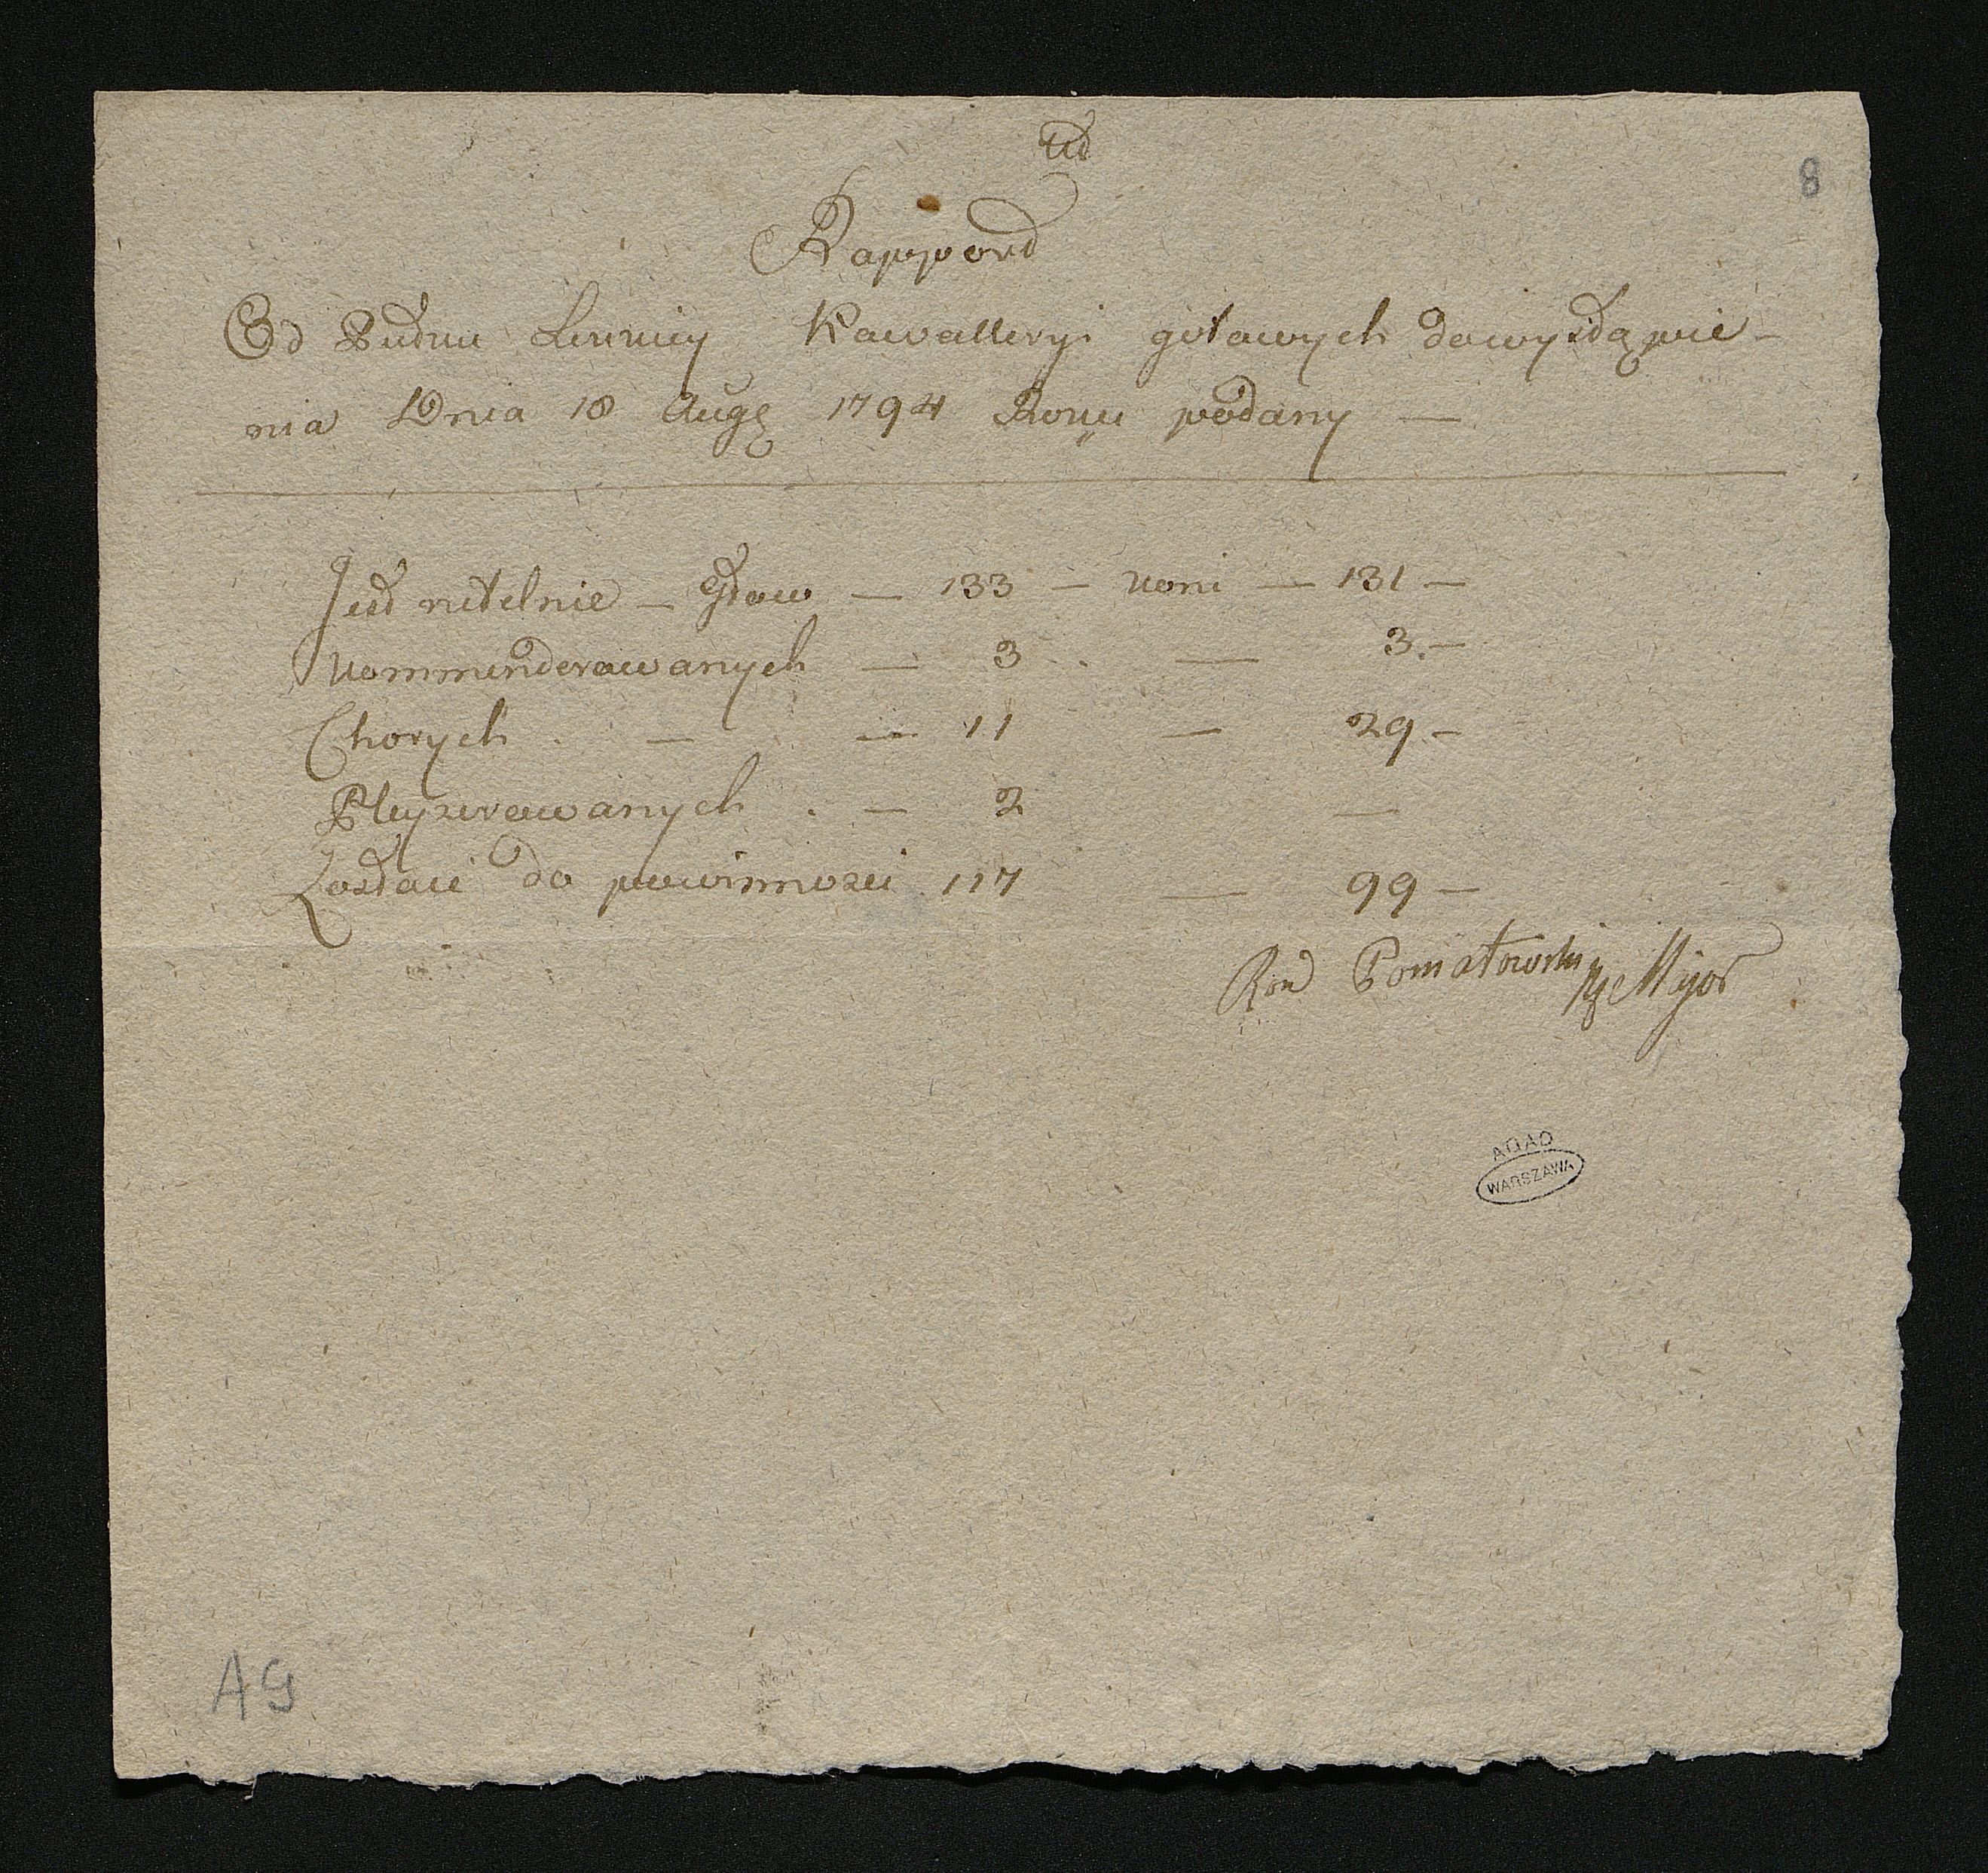 8
Rapport
Od Pułku Lekkiey Kawalleryi gotowych do wystąpie-
nia Dnia 18 Aug 1794 Roku podany —
Jest rutelnie — Głow — 133 — koni — 131 —
kommenderowanych — 3 . — 3. —
Chorych . — — 11 — 29. —
Pleyzerowanych . — 2 —
Zostaie do powinnosci . 117 — 99 —
Poniatowski Major
AGAD
WARSZAWA
AG